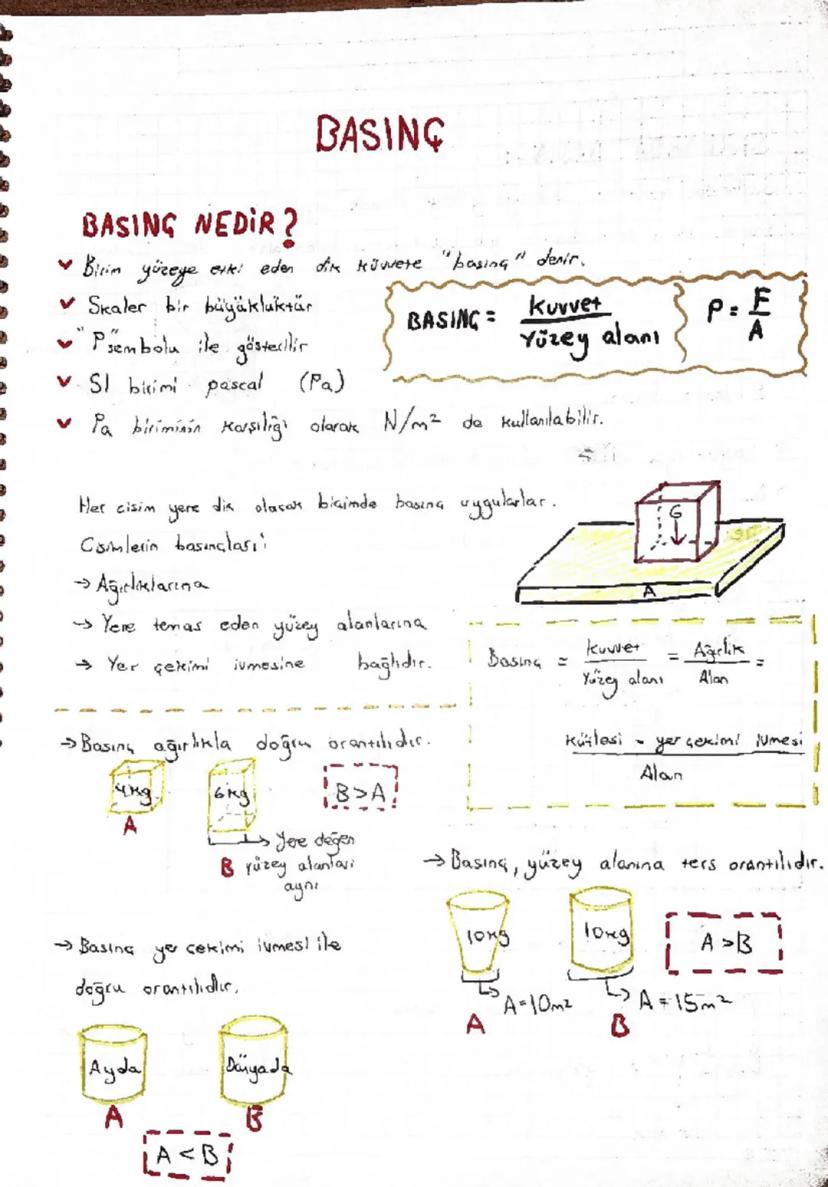 BASINÇ
BASINÇ NEDİR?
Birim yüzeye etki eden dik kuvvete "basınç" denir.
Skaler bir büyüklüktür
"P" sembolu ile gösterilir
SI birimi pascal (Pa)
Pa biriminin karşılığı olarak N/m² de kullanılabilir.
BASINÇ = Kuvvet / Yüzey alanı
P = F / A
Her cisim yere dik olacak biçimde basınç uygularlar.
Cisimlerin basınçları;
→ Ağırlıklarına
→ Yere temas eden yüzey alanlarına
→ Yer çekimi ivmesine bağlıdır.
G
A
Basınç = Kuvvet / Yüzey alanı = Ağırlık / Alan =
Kütlesi - yer çekimi ivmesi / Alan
→ Basınç ağırlıkla doğru orantılıdır.
4kg
6kg
B > A
A
→ Yere değen
B yüzey alanları
aynı
→ Basınç, yüzey alanına ters orantılıdır.
10kg
10kg
A > B
A=10m²
A=15m²
A
B
→ Basınç yer çekimi ivmesi ile
doğru orantılıdır.
Ayda
Dünyada
A
B
A < B